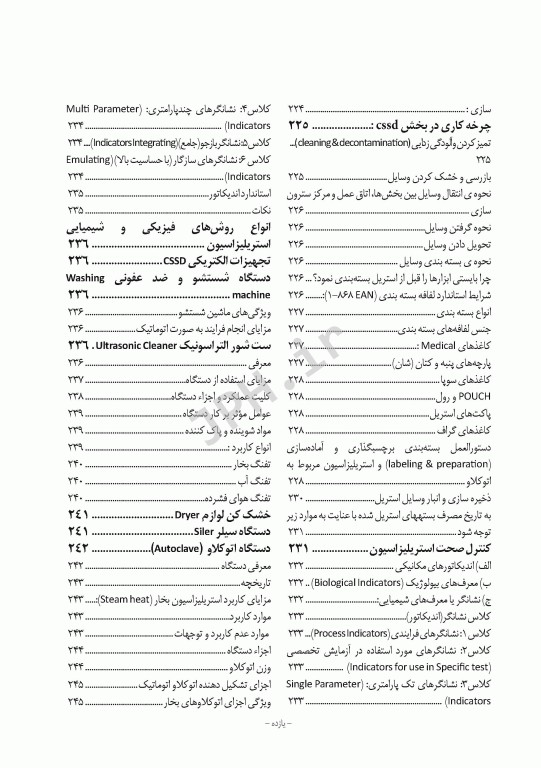 سازی : ........ ۲۲۴
چرخه کاری در بخش cssd : ........ ۲۲۵
تمیز کردن وآلودگی زدایی (cleaning & decontamination)...
۲۲۵
بازرسی و خشک کردن وسایل ........ ۲۲۵
نحوه ی انتقال وسایل بین بخش‌ها، اتاق عمل و مرکز سترون
سازی ........ ۲۲۶
نحوه گرفتن وسایل ........ ۲۲۶
تحویل دادن وسایل ........ ۲۲۶
نحوه ی بسته بندی وسایل ........ ۲۲۶
چرا بایستی ابزارها را قبل از استریل بسته‌بندی نمود؟ ... ۲۲۶
شرایط استاندارد لفافه بسته بندی (EAN ۸۶۸-۱): ........ ۲۲۶
انواع بسته بندی ........ ۲۲۷
جنس لفافه‌های بسته بندی ........ ۲۲۷
کاغذهای Medical : ........ ۲۲۷
پارچه‌های پنبه و کتان (شان) ........ ۲۲۷
کاغذهای سوپا ........ ۲۲۸
POUCH و رول ........ ۲۲۸
پاکت‌های استریل ........ ۲۲۸
کاغذهای گراف ........ ۲۲۸
دستورالعمل بسته‌بندی برچسبگذاری و آماده‌سازی
(labeling & preparation) و استریلیزاسیون مربوط به
اتوکلاو ........ ۲۲۸
ذخیره سازی و انبار وسایل استریل ........ ۲۳۰
به تاریخ مصرف بستههای استریل شده با عنایت به موارد زیر
توجه شود ........ ۲۳۱
کنترل صحت استریلیزاسیون ........ ۲۳۱
الف) اندیکاتورهای مکانیکی ........ ۲۳۲
ب) معرف‌های بیولوژیک (Biological Indicators) .. ۲۳۲
ج) نشانگر یا معرف‌های شیمیایی: ........ ۲۳۲
کلاس نشانگر(اندیکاتور) ........ ۲۳۳
کلاس ۱: نشانگرهای فرایندی (Process Indicators) ... ۲۳۳
کلاس۲: نشانگرهای مورد استفاده در آزمایش تخصصی
(Indicators for use in Specific test) ........ ۲۳۳
کلاس۳: نشانگرهای تک پارامتری: (Single Parameter
Indicators) ........ ۲۳۳
کلاس۴: نشانگرهای چندپارامتری: (Multi Parameter
Indicators) ........ ۲۳۴
کلاس۵: نشانگر بازجو(جامع) (Indicators Integrating) ... ۲۳۴
کلاس ۶: نشانگرهای سازگار (با حساسیت بالا) (Emulating
Indicators) ........ ۲۳۴
استاندارد اندیکاتور ........ ۲۳۵
نکات ........ ۲۳۵
انواع روش‌های فیزیکی و شیمیایی
استریلیزاسیون ........ ۲۳۶
تجهیزات الکتریکی CSSD ........ ۲۳۶
دستگاه شستشو و ضد عفونی Washing
machine ........ ۲۳۶
ویژگی‌های ماشین شستشو ........ ۲۳۶
مزایای انجام فرایند به صورت اتوماتیک ........ ۲۳۶
ست شور التراسونیک Ultrasonic Cleaner . ۲۳۶
معرفی ........ ۲۳۶
مزایای استفاده از دستگاه ........ ۲۳۷
کلیت عملکرد و اجزاء دستگاه ........ ۲۳۸
عوامل مؤثر بر کار دستگاه ........ ۲۳۹
مواد شوینده و پاک کننده ........ ۲۳۹
انواع کاربرد : ........ ۲۳۹
تفنگ بخار ........ ۲۴۰
تفنگ آب ........ ۲۴۰
تفنگ هوای فشرده ........ ۲۴۰
خشک کن لوازم Dryer ........ ۲۴۱
دستگاه سیلر Siler ........ ۲۴۱
دستگاه اتوکلاو (Autoclave) ........ ۲۴۲
معرفی دستگاه ........ ۲۴۲
تاریخچه ........ ۲۴۳
مزایای کاربرد استریلیزاسیون بخار (Steam heat): ..... ۲۴۳
موارد کاربرد ........ ۲۴۳
موارد عدم کاربرد و توجهات ........ ۲۴۳
اجزاء دستگاه ........ ۲۴۴
وزن اتوکلاو ........ ۲۴۴
اجزای تشکیل دهنده اتوکلاو اتوماتیک ........ ۲۴۵
ویژگی اجزای اتوکلاوهای بخار ........ ۲۴۵
– یازده –